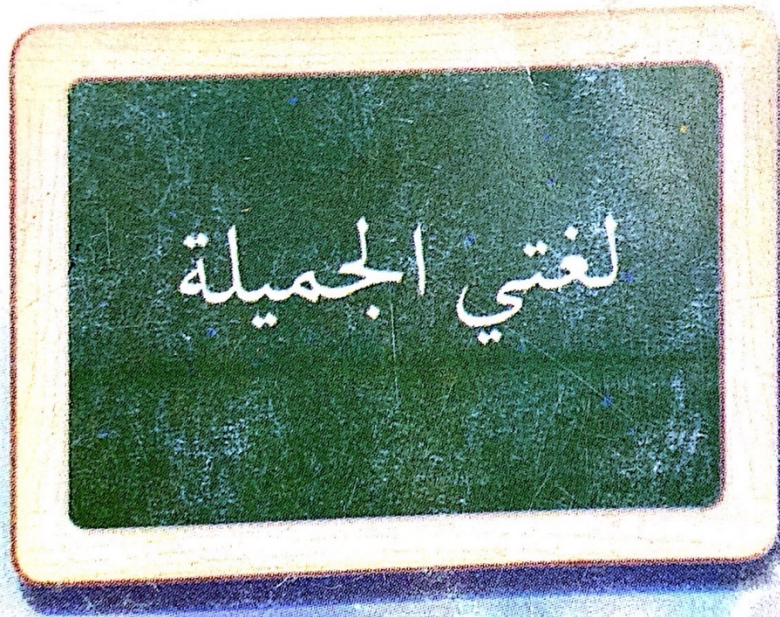 لغتي الجميلة